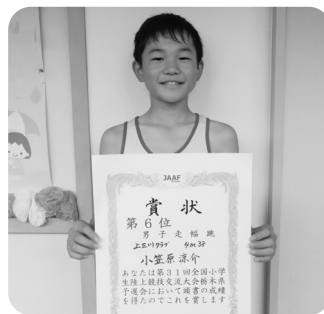 JAAF
賞状
第6位
男子走幅跳
上三川クラブ 4m38
小笠原涼介
あなたは第31回全国小学
生陸上競技交流大会栃木県
予選会において頭書の成績
を得たのでこれを賞します